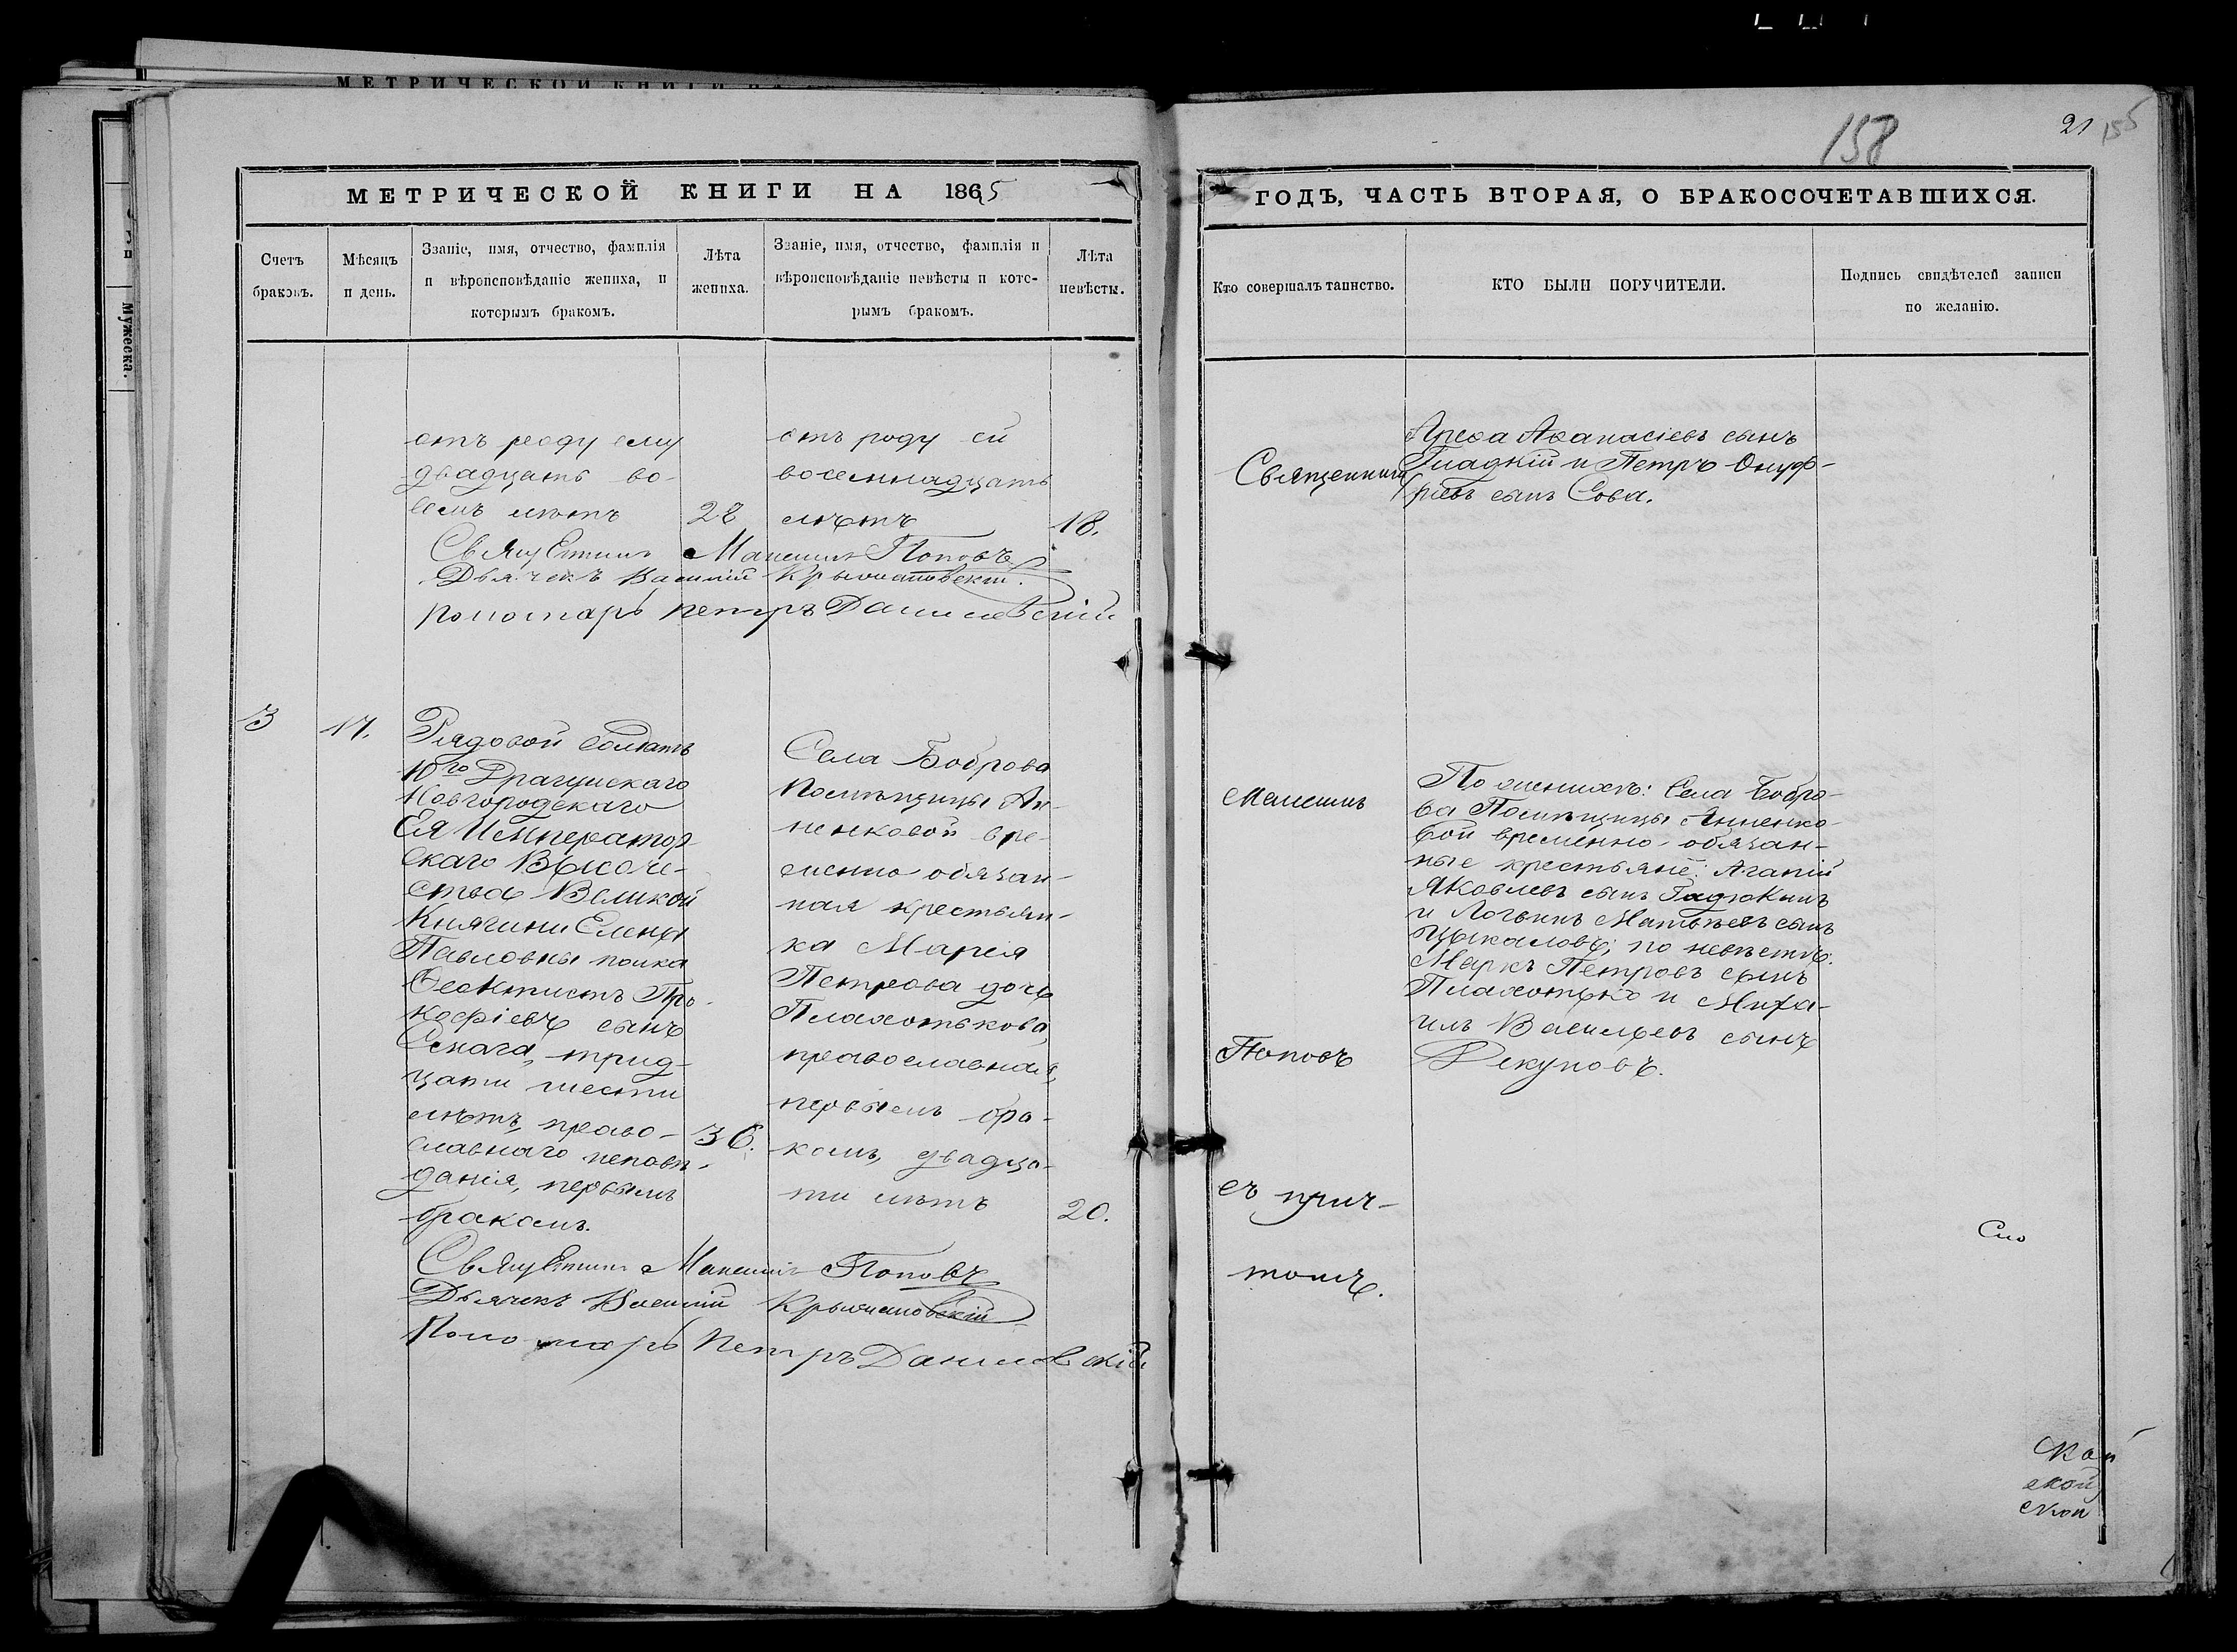 МЕТРИЧЕСКОЙ КНИГИ НА
158
21
155
МЕТРИЧЕСКОЙ КНИГИ НА 1865
ГОДЪ, ЧАСТЬ ВТОРАЯ, О БРАКОСОЧЕТАВШИХСЯ.
Счетъ
браковъ.
Мѣсяцъ
и день.
Званіе, имя, отчество, фамилія
и вѣроисповѣданіе жениха, и
которымъ бракомъ.
Лѣта
жениха.
Званіе, имя, отчество, фамилія и
вѣроисповѣданіе невѣсты и кото-
рымъ бракомъ.
Лѣта
невѣсты.
Кто совершалъ таинство.
КТО БЫЛИ ПОРУЧИТЕЛИ.
Подпись свидѣтелей записи
по желанію.
Мужеска.
отъ роду ему
двадцать во-
семь лѣтъ
28
отъ роду ей
восемнадцать
лѣтъ
18.
Священникъ
Арефа Афанасіевъ сынъ
Гладкій и Петръ Онуф-
ріевъ сынъ Сова.
Священникъ Максимъ Поповъ
Дьячекъ Василій Крыжановскій.
Пономарь Петръ Данилевскій
3
17.
Рядовой солдатъ
10го Драгунскаго
Новгородскаго
Ея Император
скаго Высоче-
ства Великой
Княгини Елены
Павловны полка
Феоктистъ Про-
кофіевъ сынъ
трид-
цати шести
лѣтъ, право-
славнаго исповѣ-
данія, первымъ
бракомъ.
36.
Села Боброва
Помѣщицы Ан-
ненковой вре-
менно обязан-
ная крестьян-
ка Марія
Петрова дочь
Плахотькова,
православная,
первымъ бра-
комъ, двадца-
ти лѣтъ
20.
Максимъ
Поповъ
съ прич-
томъ.
По женихѣ: Села Бобро-
ва Помѣщицы Анненко-
вой временно-обязан-
ные крестьяне: Агапій
Яковлевъ сынъ Гадюкинъ
и Логвинъ Матвѣевъ сынъ
Цыкаловъ; по невѣстѣ:
Маркъ Петровъ сынъ
Плахотько и Миха-
илъ Васильевъ сынъ
Рекуновъ.
Священникъ Максимъ Поповъ
Дьячекъ Василій Крыжановскій
Пономарь Петръ Данилевскій
ской
ской